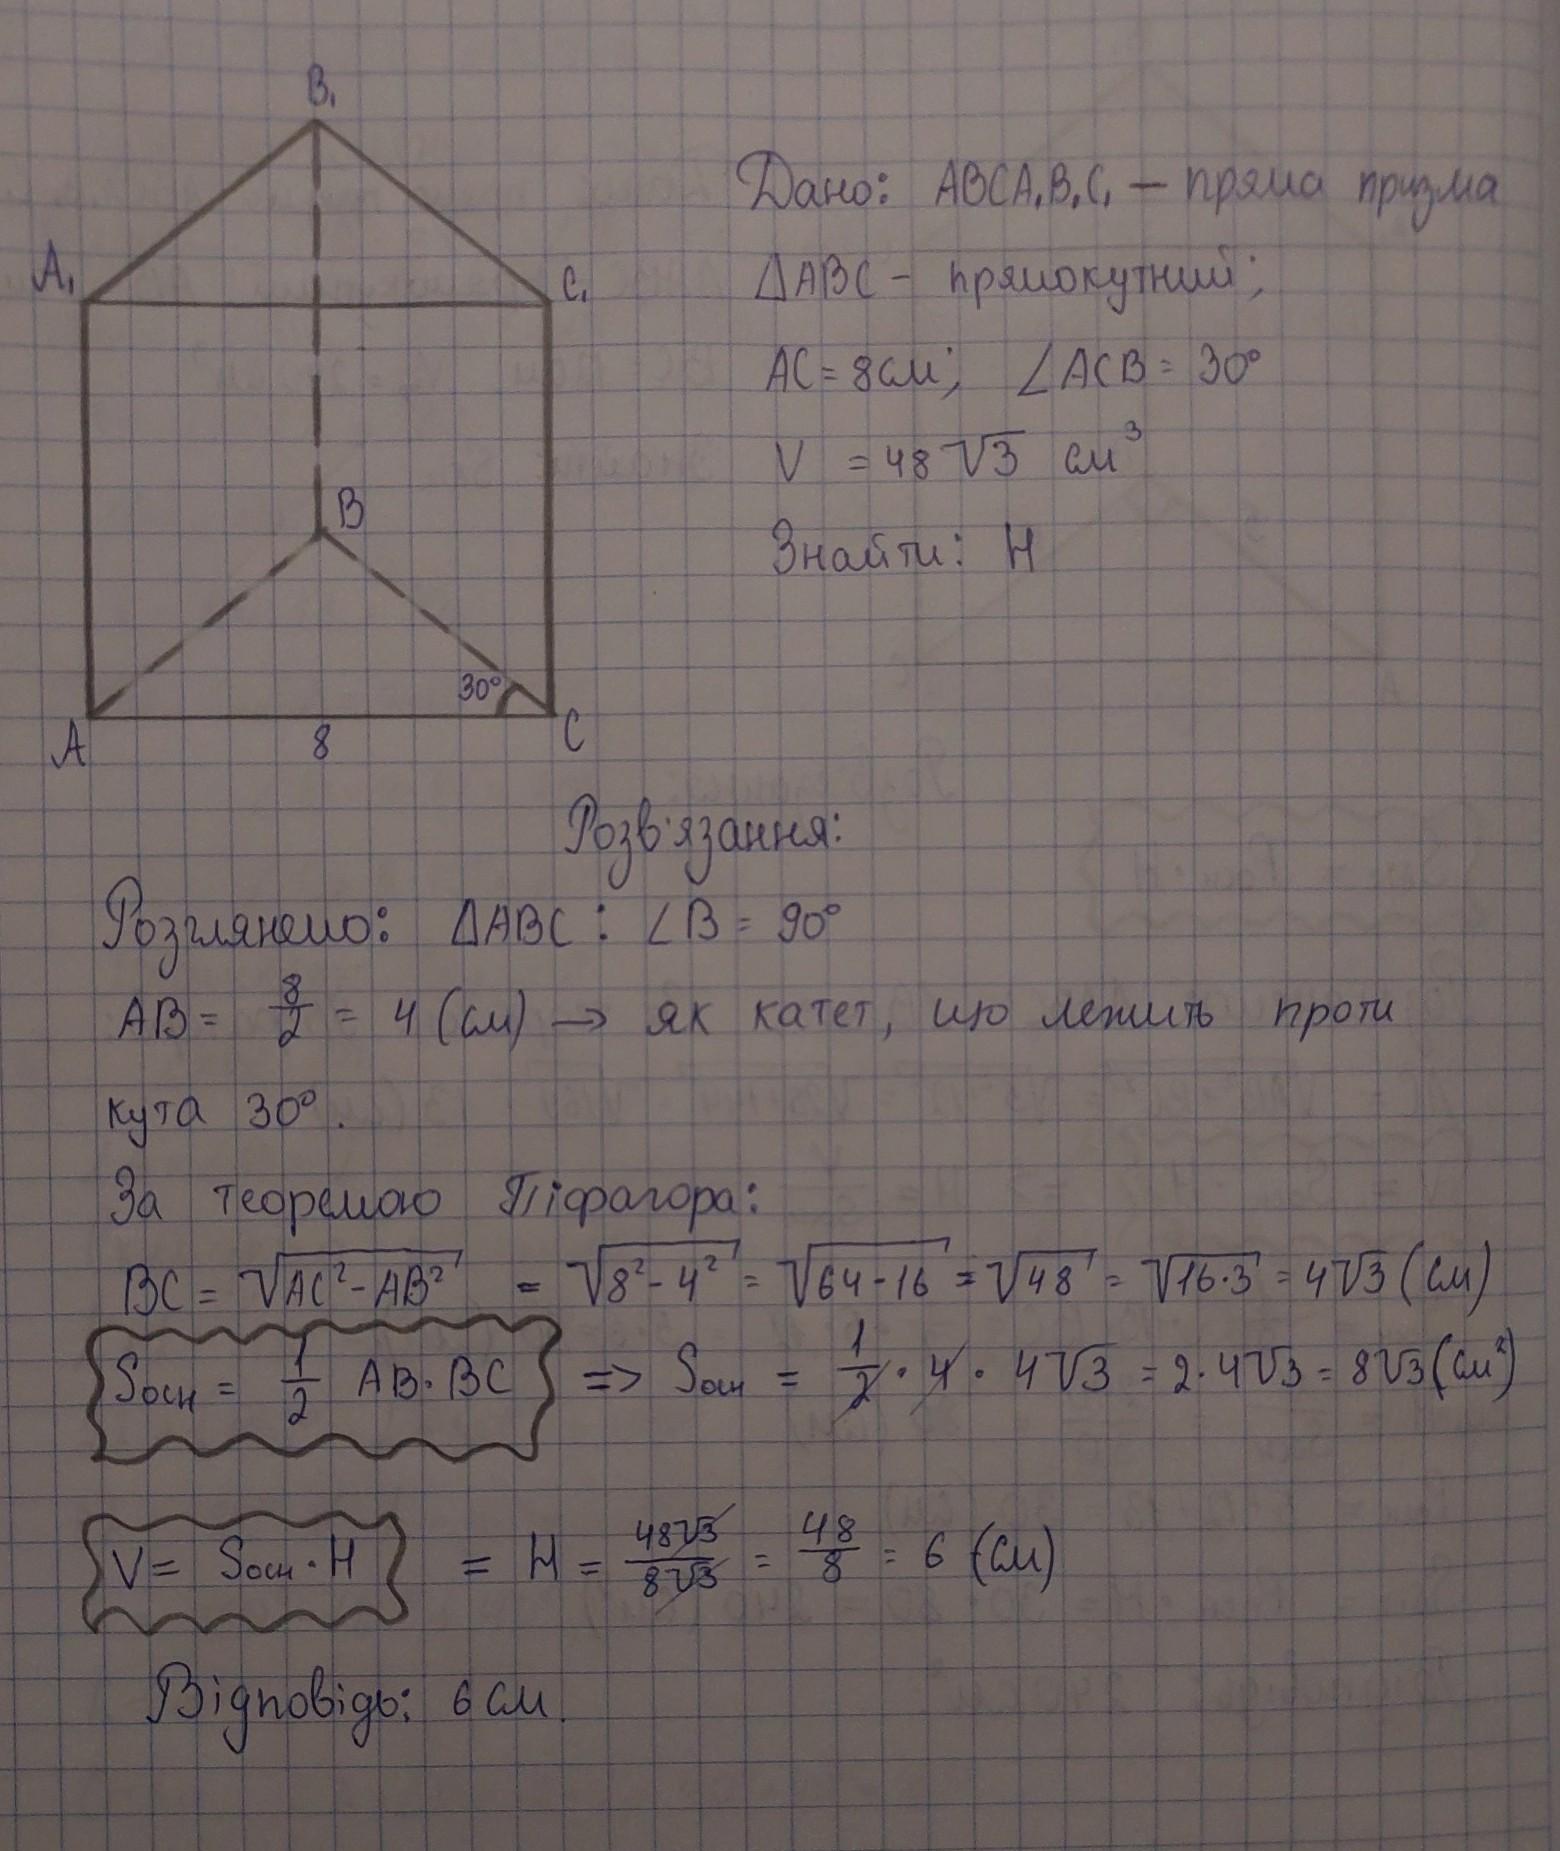 B₁
A₁
C₁
B
30°
A
8
C
Дано: ABCA₁B₁C₁ — пряма призма
ΔABC - прямокутний;
AC = 8см; ∠ACB = 30°
V = 48√3 см³
Знайти: H
Розв'язання:
Розглянемо: ΔABC : ∠B = 90°
AB = 8/2 = 4 (см) → як катет, що лежить проти
кута 30°.
За теоремою Піфагора:
BC = √(AC² - AB²) = √(8² - 4²) = √(64 - 16) = √48 = √(16·3) = 4√3 (см)
Sосн = 1/2 AB·BC => Sосн = 1/2 · 4 · 4√3 = 2·4√3 = 8√3 (см²)
V = Sосн · H = H = 48√3/8√3 = 48/8 = 6 (см)
Відповідь: 6 см.